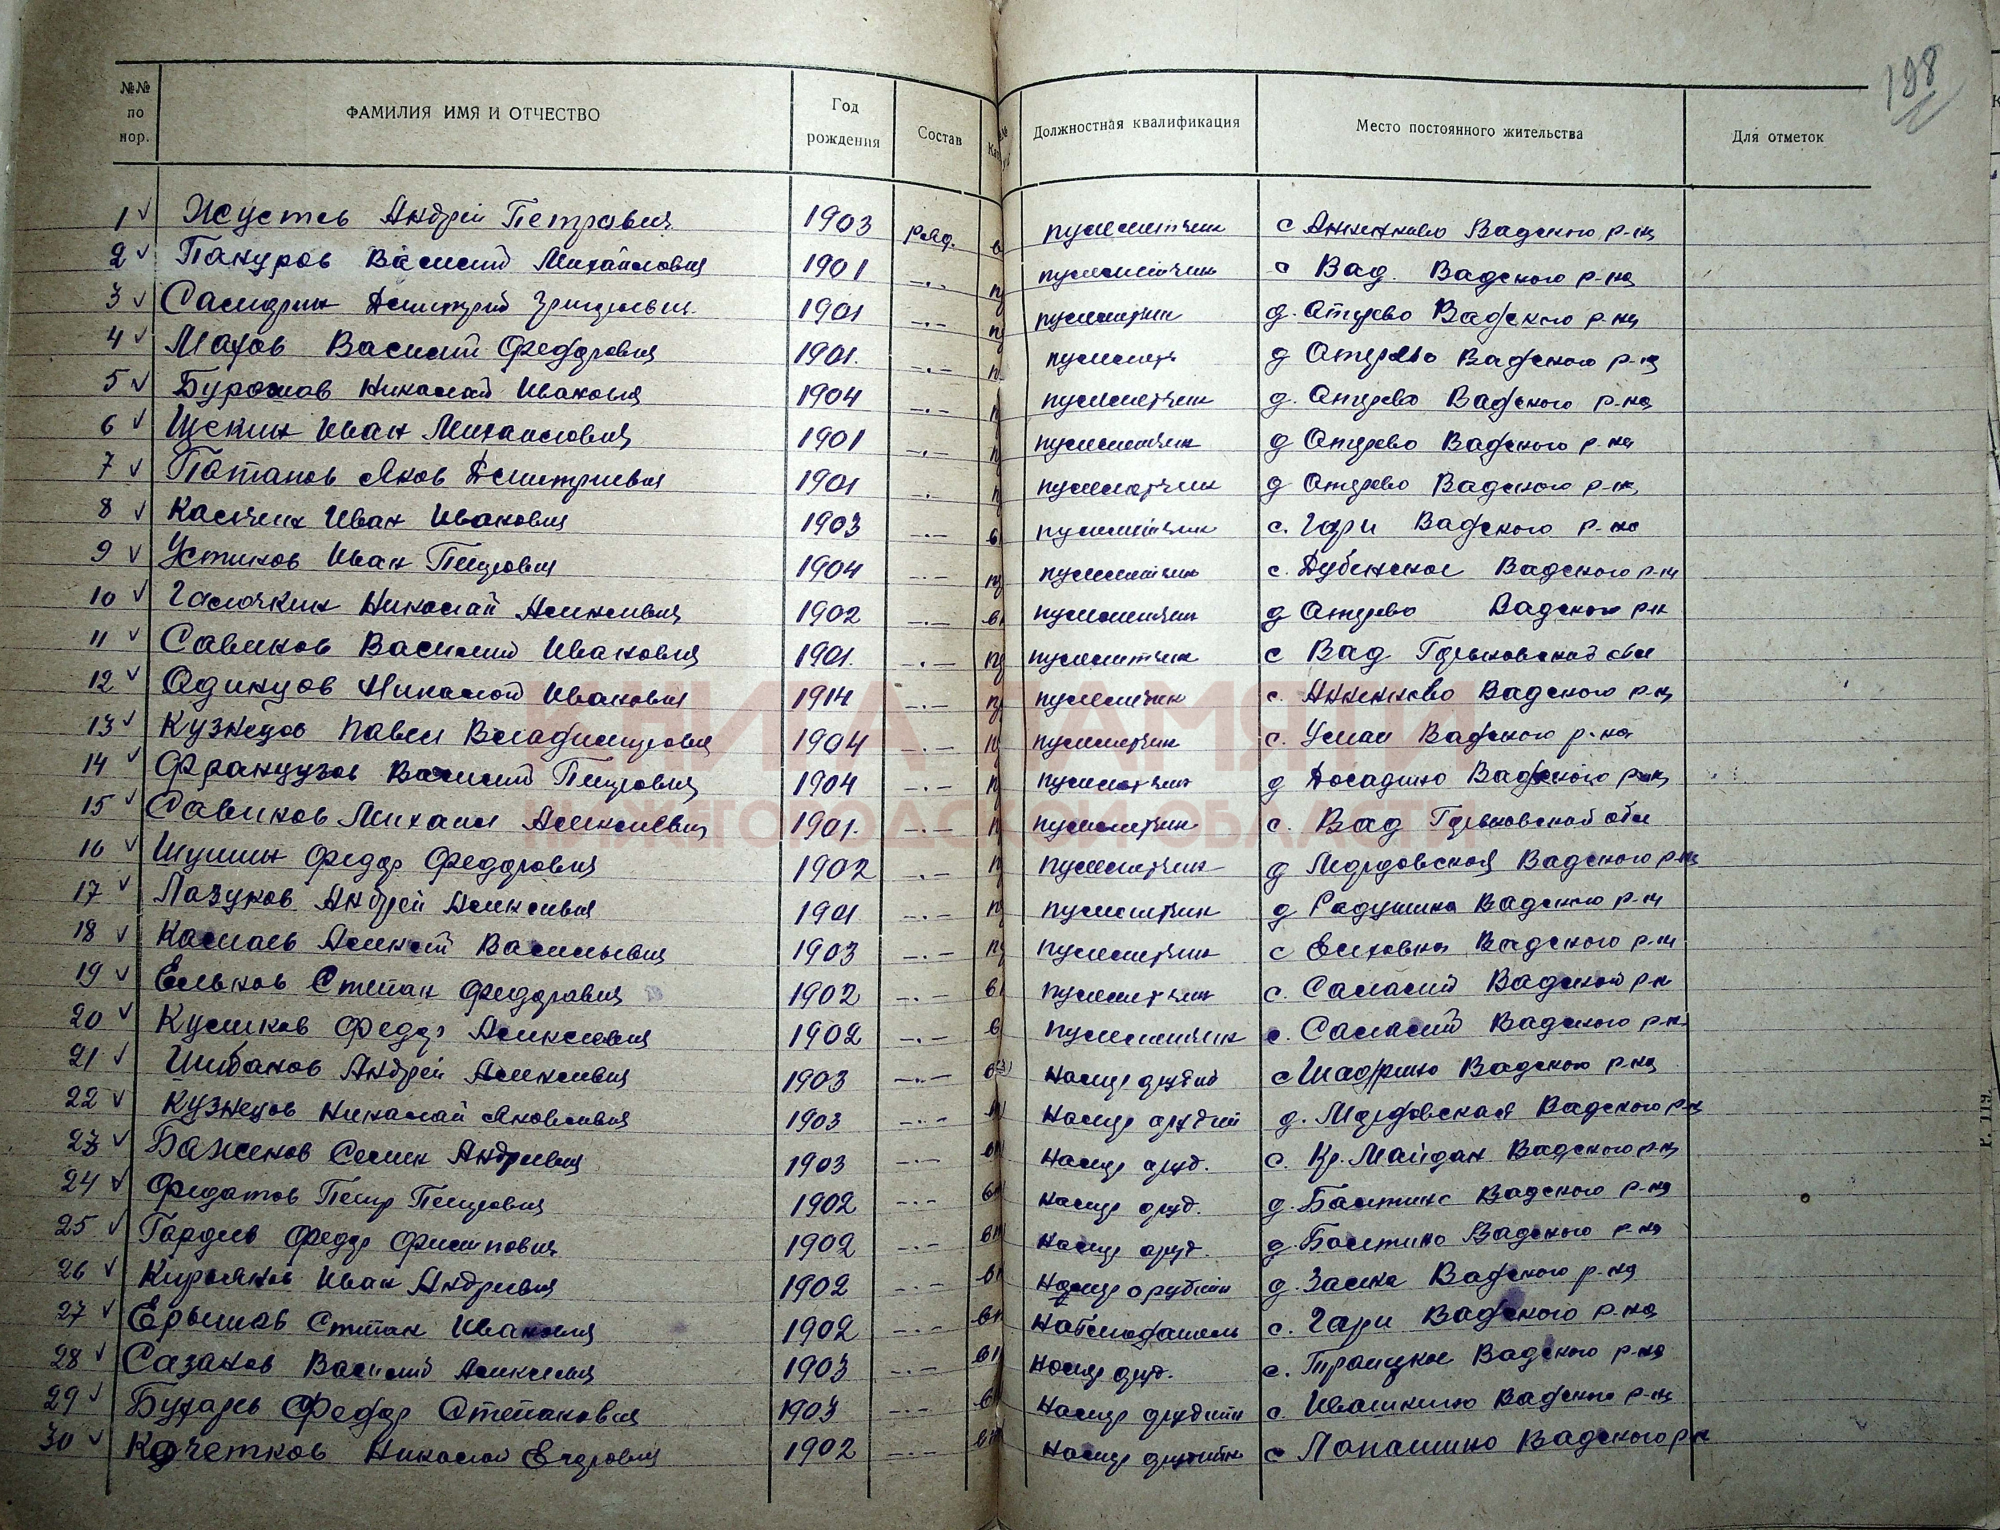 188
№№ по пор. ФАМИЛИЯ ИМЯ И ОТЧЕСТВО Год рождения Состав Должностная квалификация Место постоянного жительства Для отметок
1 Андрей Петрович 1903 ряд. пулеметчик с Анненково Вадского р-на
2 Пануров Василий Михайлович 1901 -.- пулеметчик с Вад. Вадского р-на
3 Дмитрий Григорьевич 1901 -.- пулеметчик д. Отерево Вадского р-на
4 Махов Василий Федорович 1901. -.- д Отерево Вадского р-на
5 Николай Иванович 1904 -.- пулеметчик д. Отерево Вадского р-на
6 Щекин Иван Михайлович 1901 -.- пулеметчик д Отерево Вадского р-на
7 Потапов Яков Дмитриевич 1901 -.- пулеметчик д Отерево Вадского р-на
8 Иван Иванович 1903 -.- пулеметчик с. Гари Вадского р-на
9 Устинов Иван Петрович 1904 -.- пулеметчик с. Дубенское Вадского р-на
10 Галочкин Николай Алексеевич 1902 -.- пулеметчик д Отерево Вадского р-н
11 Савинов Василий Иванович 1901. -.- пулеметчик с Вад Горьковской обл
12 Одинцов Николай Иванович 1914 -.- пулеметчик с. Анненково Вадского р-на
13 Кузнецов Павел Владимирович 1904 -.- пулеметчик с. Умай Вадского р-на
14 Французов Василий Петрович 1904 -.- пулеметчик д Досадино Вадского р-на
15 Савинов Михаил Алексеевич 1901. -.- пулеметчик с. Вад Горьковской обл
16 Федор Федорович 1902 -.- пулеметчик д Мордовская Вадского р-на
17 Лазуков Андрей Алексеевич 1901 -.- пулеметчик д Радушина Вадского р-на
18 Алексей Васильевич 1903 -.- пулеметчик с Елховка Вадского р-на
19 Ельков Степан Федорович 1902 -.- пулеметчик с. Салалей Вадского р-н
20 Куликов Федор Алексеевич 1902 -.- пулеметчик с. Салалей Вадского р-на
21 Шибанов Андрей Алексеевич 1903 -.- номер орудий с Шадрино Вадского р-на
22 Кузнецов Николай Яковлевич 1903 -.- номер орудий д. Мордовская Вадского р-на
23 Баженов Семен Андреевич 1903 -.- номер оруд. с. Кр. Майдан Вадского р-на
24 Федотов Петр Петрович 1902 -.- номер оруд. д. Вадского р-на
25 Гордеев Федор Филипович 1902 -.- номер оруд. д. Вадского р-на
26 Кирьянов Иван Андреевич 1902 -.- номер орудий д. Вадского р-на
27 Степан Иванович 1902 -.- наблюдатель с. Гари Вадского р-на
28 Сазанов Василий Алексеевич 1903 -.- номер оруд. с. Троицкое Вадского р-на
29 Бухарев Федор Степанович 1903 -.- номер с. Ивашкино Вадского р-на
30 Кочетков Николай Егорович 1902 -.- номер с Лопатино Вадского р-н
КНИГА ПАМЯТИ
НИЖЕГОРОДСКОЙ ОБЛАСТИ